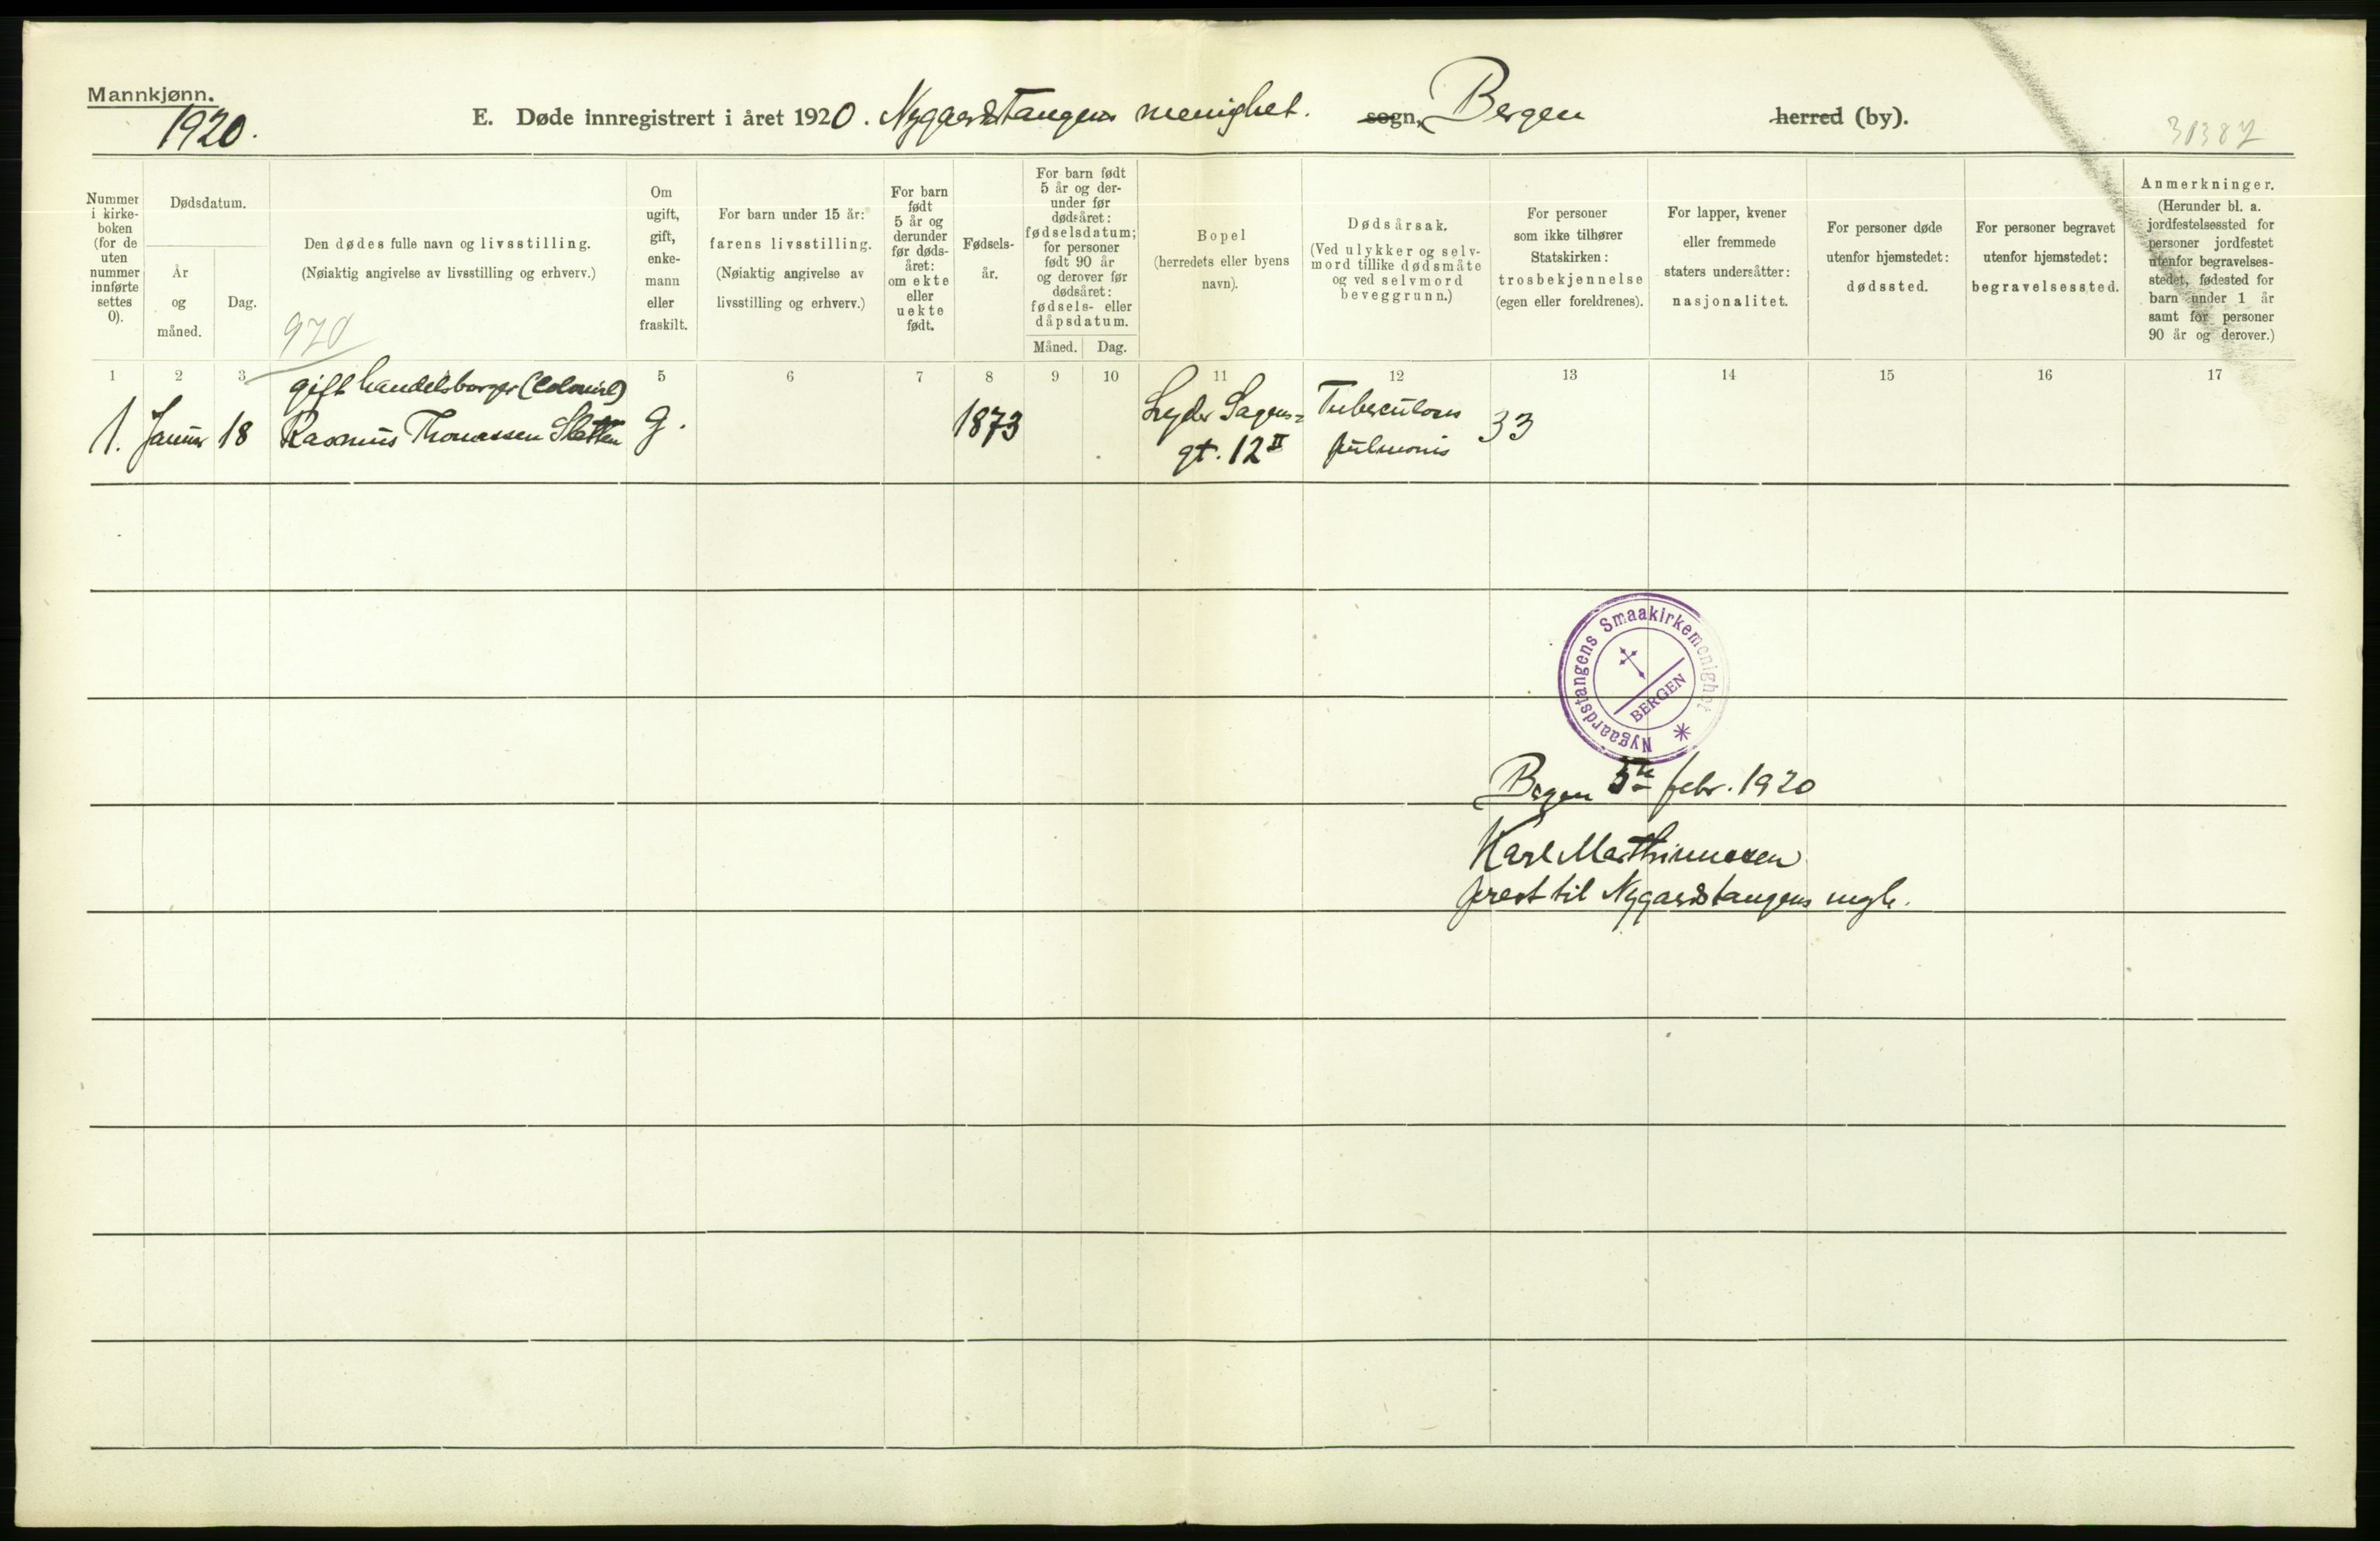 Mannkjønn.
1920.
E. Døde innregistrert i året 1920. Nygaardstangens menighet. sogn, Bergen herred (by).
Nummer i kirkeboken (for de uten nummer innførte settes 0).
Dødsdatum.
År og måned.
Dag.
Den dødes fulle navn og livsstilling.
(Nøiaktig angivelse av livsstilling og erhverv.)
970
Om ugift, gift, enkemann eller fraskilt.
For barn under 15 år:
farens livsstilling.
(Nøiaktig angivelse av livsstilling og erhverv.)
For barn født 5 år og derunder før dødsåret: om ekte eller uekte født.
Fødselsår.
For barn født 5 år og derunder før dødsåret: fødselsdatum; for personer født 90 år og derover før dødsåret: fødsels- eller dåpsdatum.
Måned.
Dag.
Bopel
(herredets eller byens navn).
Dødsårsak.
(Ved ulykker og selvmord tillike dødsmåte og ved selvmord beveggrunn.)
For personer som ikke tilhører Statskirken: trosbekjennelse (egen eller foreldrenes).
For lapper, kvener eller fremmede staters undersåtter: nasjonalitet.
For personer døde utenfor hjemstedet: dødssted.
For personer begravet utenfor hjemstedet: begravelsessted.
Anmerkninger.
(Herunder bl. a. jordfestelsessted for personer jordfestet utenfor begravelsesstedet, fødested for barn under 1 år samt for personer 90 år og derover.)
1 2 3 5 6 7 8 9 10 11 12 13 14 15 16 17
gift handelsborger (Colonial)
1. Januar 18 Rasmus Thomassen Sletten g. 1873 Lyder Sagens= gt. 12 II Tuberculosis pulmonis 33
Nygaardstangens Smaakirkemenighet
BERGEN
Bergen 5te febr. 1920
Karl Marthinussen
prest til Nygaardstangens mgh.